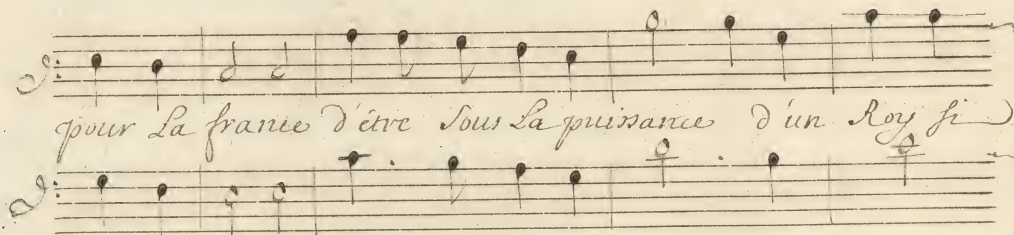 pour La france d'être Sous La puissance d'un Roy si